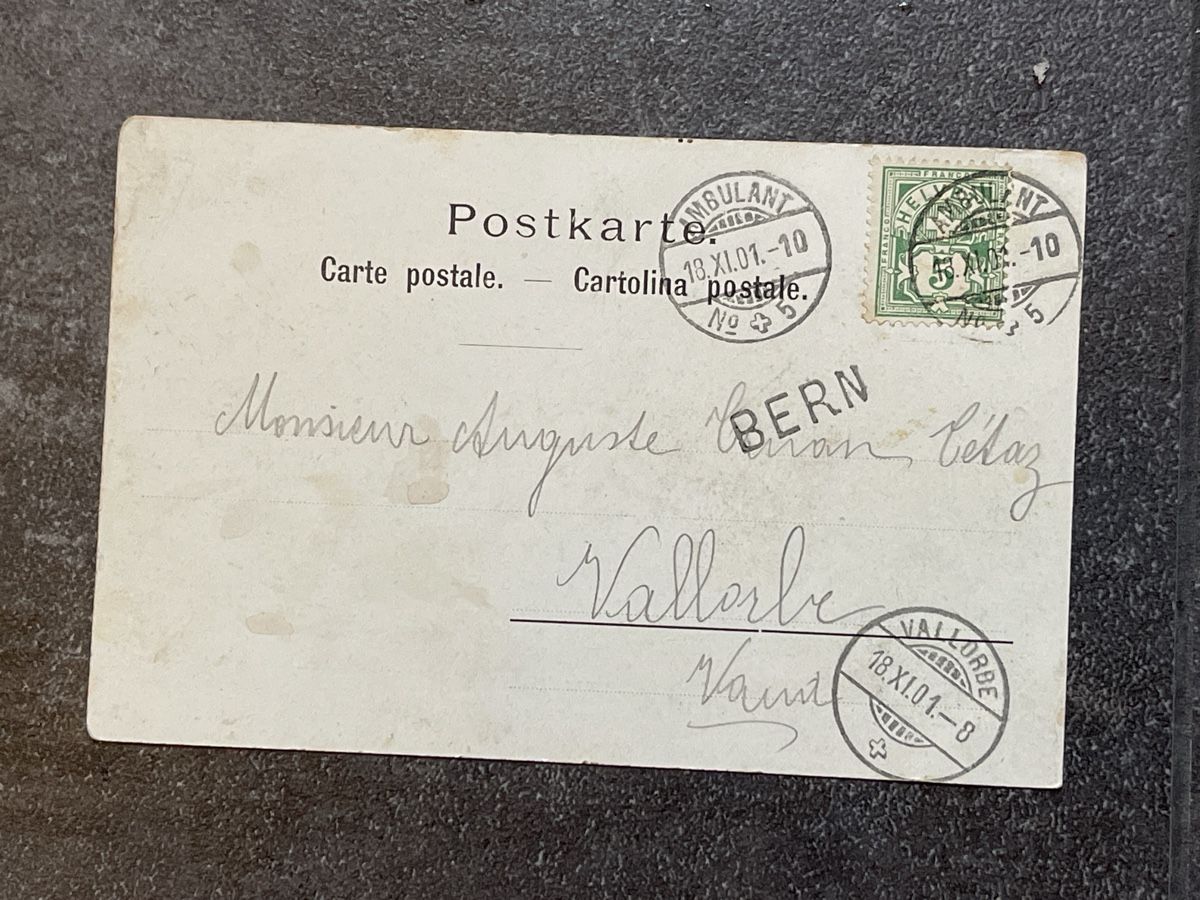 Postkarte.
Carte postale. — Cartolina postale.
AMBULANT
18.XI.01.-10
No 5
FRANCO
HELVETIA
FRANCO
5
AMBULANT
18.XI.01.-10
No 5
BERN
Monsieur Auguste Tétaz
Vallorbe
Vaud
VALLORBE
18.XI.01.-8